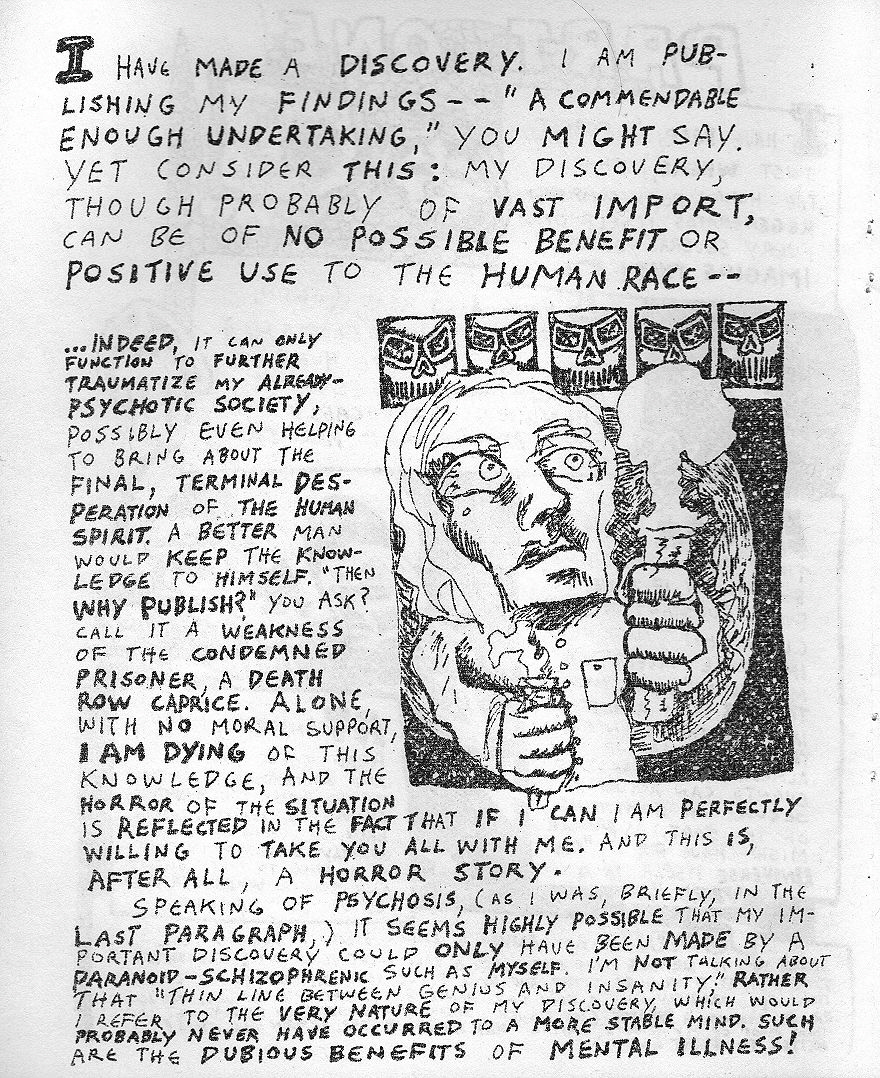 I HAVE MADE A DISCOVERY. I AM PUB-
LISHING MY FINDINGS-- "A COMMENDABLE
ENOUGH UNDERTAKING," YOU MIGHT SAY.
YET CONSIDER THIS: MY DISCOVERY,
THOUGH PROBABLY OF VAST IMPORT,
CAN BE OF NO POSSIBLE BENEFIT OR
POSITIVE USE TO THE HUMAN RACE--
...INDEED, IT CAN ONLY
FUNCTION TO FURTHER
TRAUMATIZE MY ALREADY-
PSYCHOTIC SOCIETY,
POSSIBLY EVEN HELPING
TO BRING ABOUT THE
FINAL, TERMINAL DES-
PERATION OF THE HUMAN
SPIRIT. A BETTER MAN
WOULD KEEP THE KNOW-
LEDGE TO HIMSELF. "THEN
WHY PUBLISH?" YOU ASK?
CALL IT A WEAKNESS
OF THE CONDEMNED
PRISONER, A DEATH
ROW CAPRICE. ALONE,
WITH NO MORAL SUPPORT,
I AM DYING OF THIS
KNOWLEDGE, AND THE
HORROR OF THE SITUATION
IS REFLECTED IN THE FACT THAT IF I CAN I AM PERFECTLY
WILLING TO TAKE YOU ALL WITH ME. AND THIS IS,
AFTER ALL, A HORROR STORY.
SPEAKING OF PSYCHOSIS, (AS I WAS, BRIEFLY, IN THE
LAST PARAGRAPH,) IT SEEMS HIGHLY POSSIBLE THAT MY IM-
PORTANT DISCOVERY COULD ONLY HAVE BEEN MADE BY A
PARANOID-SCHIZOPHRENIC SUCH AS MYSELF. I'M NOT TALKING ABOUT
THAT "THIN LINE BETWEEN GENIUS AND INSANITY." RATHER
I REFER TO THE VERY NATURE OF MY DISCOVERY, WHICH WOULD
PROBABLY NEVER HAVE OCCURRED TO A MORE STABLE MIND. SUCH
ARE THE DUBIOUS BENEFITS OF MENTAL ILLNESS!